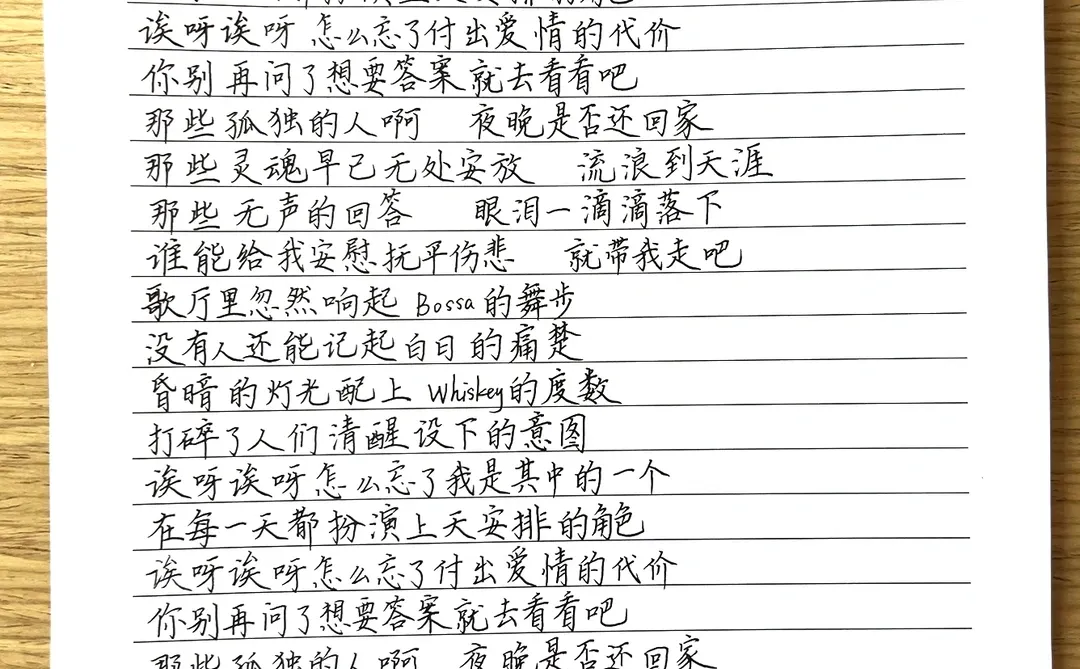 诶呀诶呀 怎么忘了付出爱情的代价
你别再问了想要答案就去看看吧
那些孤独的人啊 夜晚是否还回家
那些灵魂早已无处安放 流浪到天涯
那些无声的回答 眼泪一滴滴落下
谁能给我安慰抚平伤悲 就带我走吧
歌厅里忽然响起 Bossa的舞步
没有人还能记起白日的痛楚
昏暗的灯光配上 Whiskey的度数
打碎了人们清醒设下的意图
诶呀诶呀怎么忘了我是其中的一个
在每一天都扮演上天安排的角色
诶呀诶呀怎么忘了付出爱情的代价
你别再问了想要答案就去看看吧
那些孤独的人啊 夜晚是否还回家